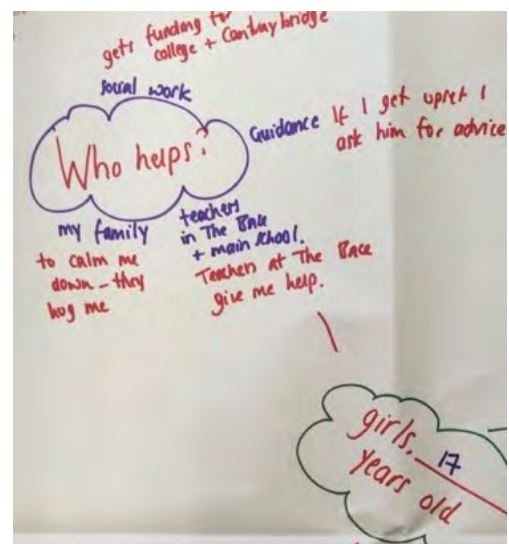 gets funding for
college + Cantraybridge
social work
Who helps?
Guidance If I get upset I
ask him for advice
my family
to calm me
down - they
hug me
teachers
in The Base
+ main school.
Teachers at The Base
give me help.
girls. 17
years old